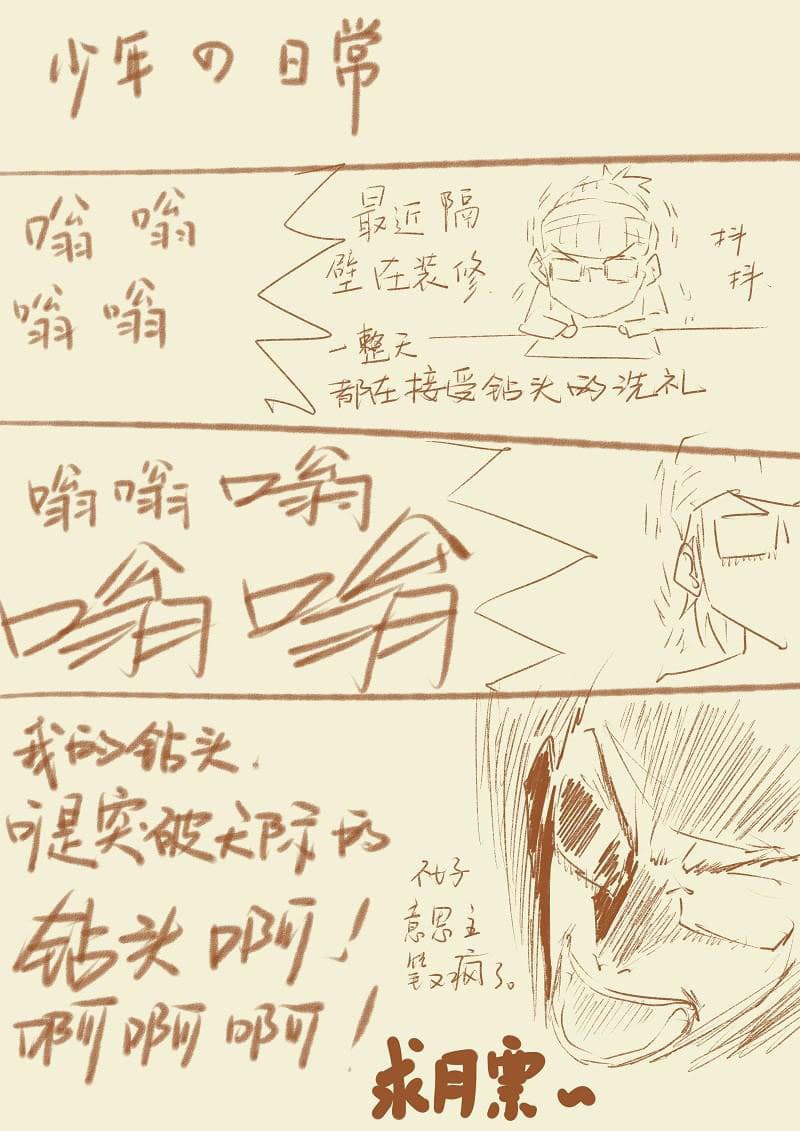 少年の日常
嗡 嗡
嗡 嗡
最近隔
壁在装修
一整天
都在接受钻头的洗礼
抖
抖
嗡 嗡 嗡
嗡 嗡
我的钻头.
可是突破天际的
钻头啊!
啊啊啊!
不好
意思主
笔又疯了。
求月票~